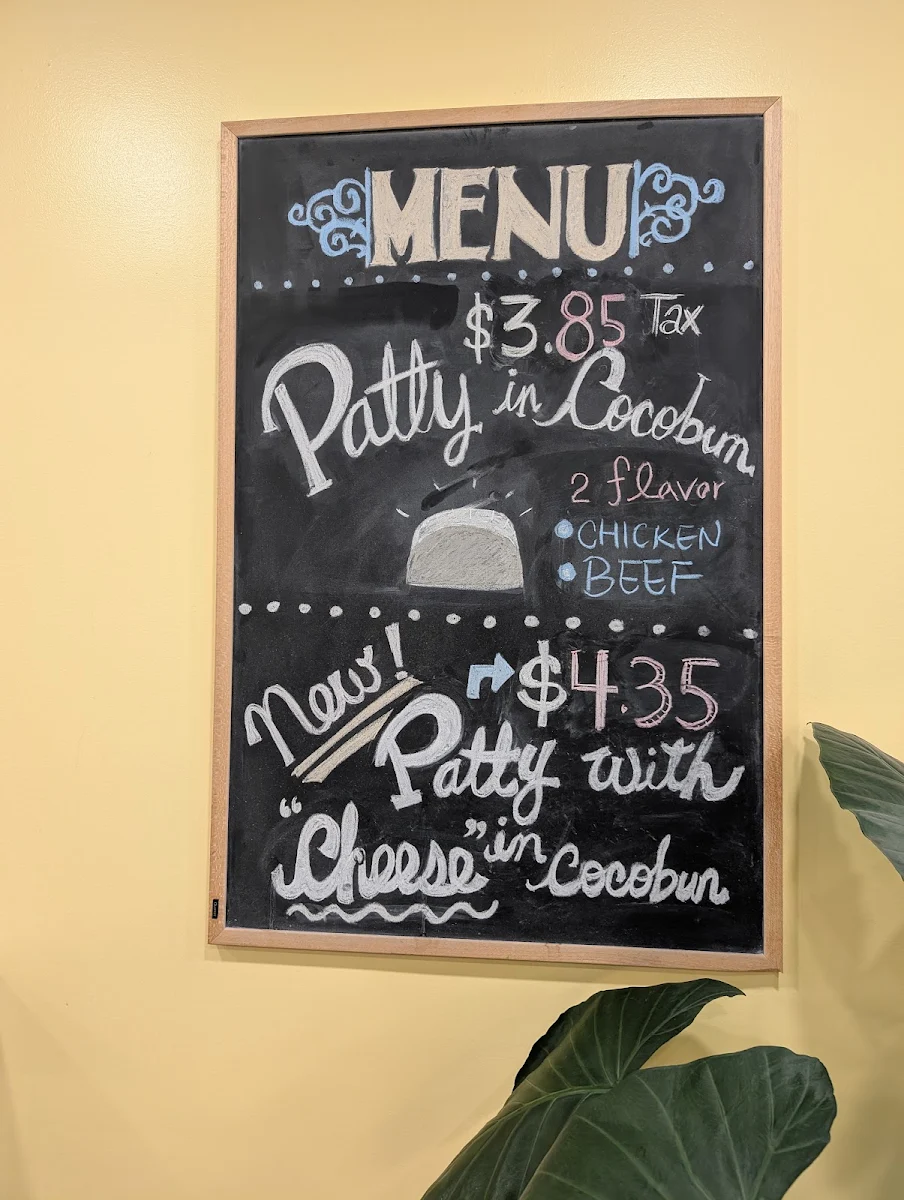 MENU
$3.85 Tax
Patty in Cocobun
2 flavor
• CHICKEN
• BEEF
New!
$4.35
Patty with
"Cheese" in Cocobun